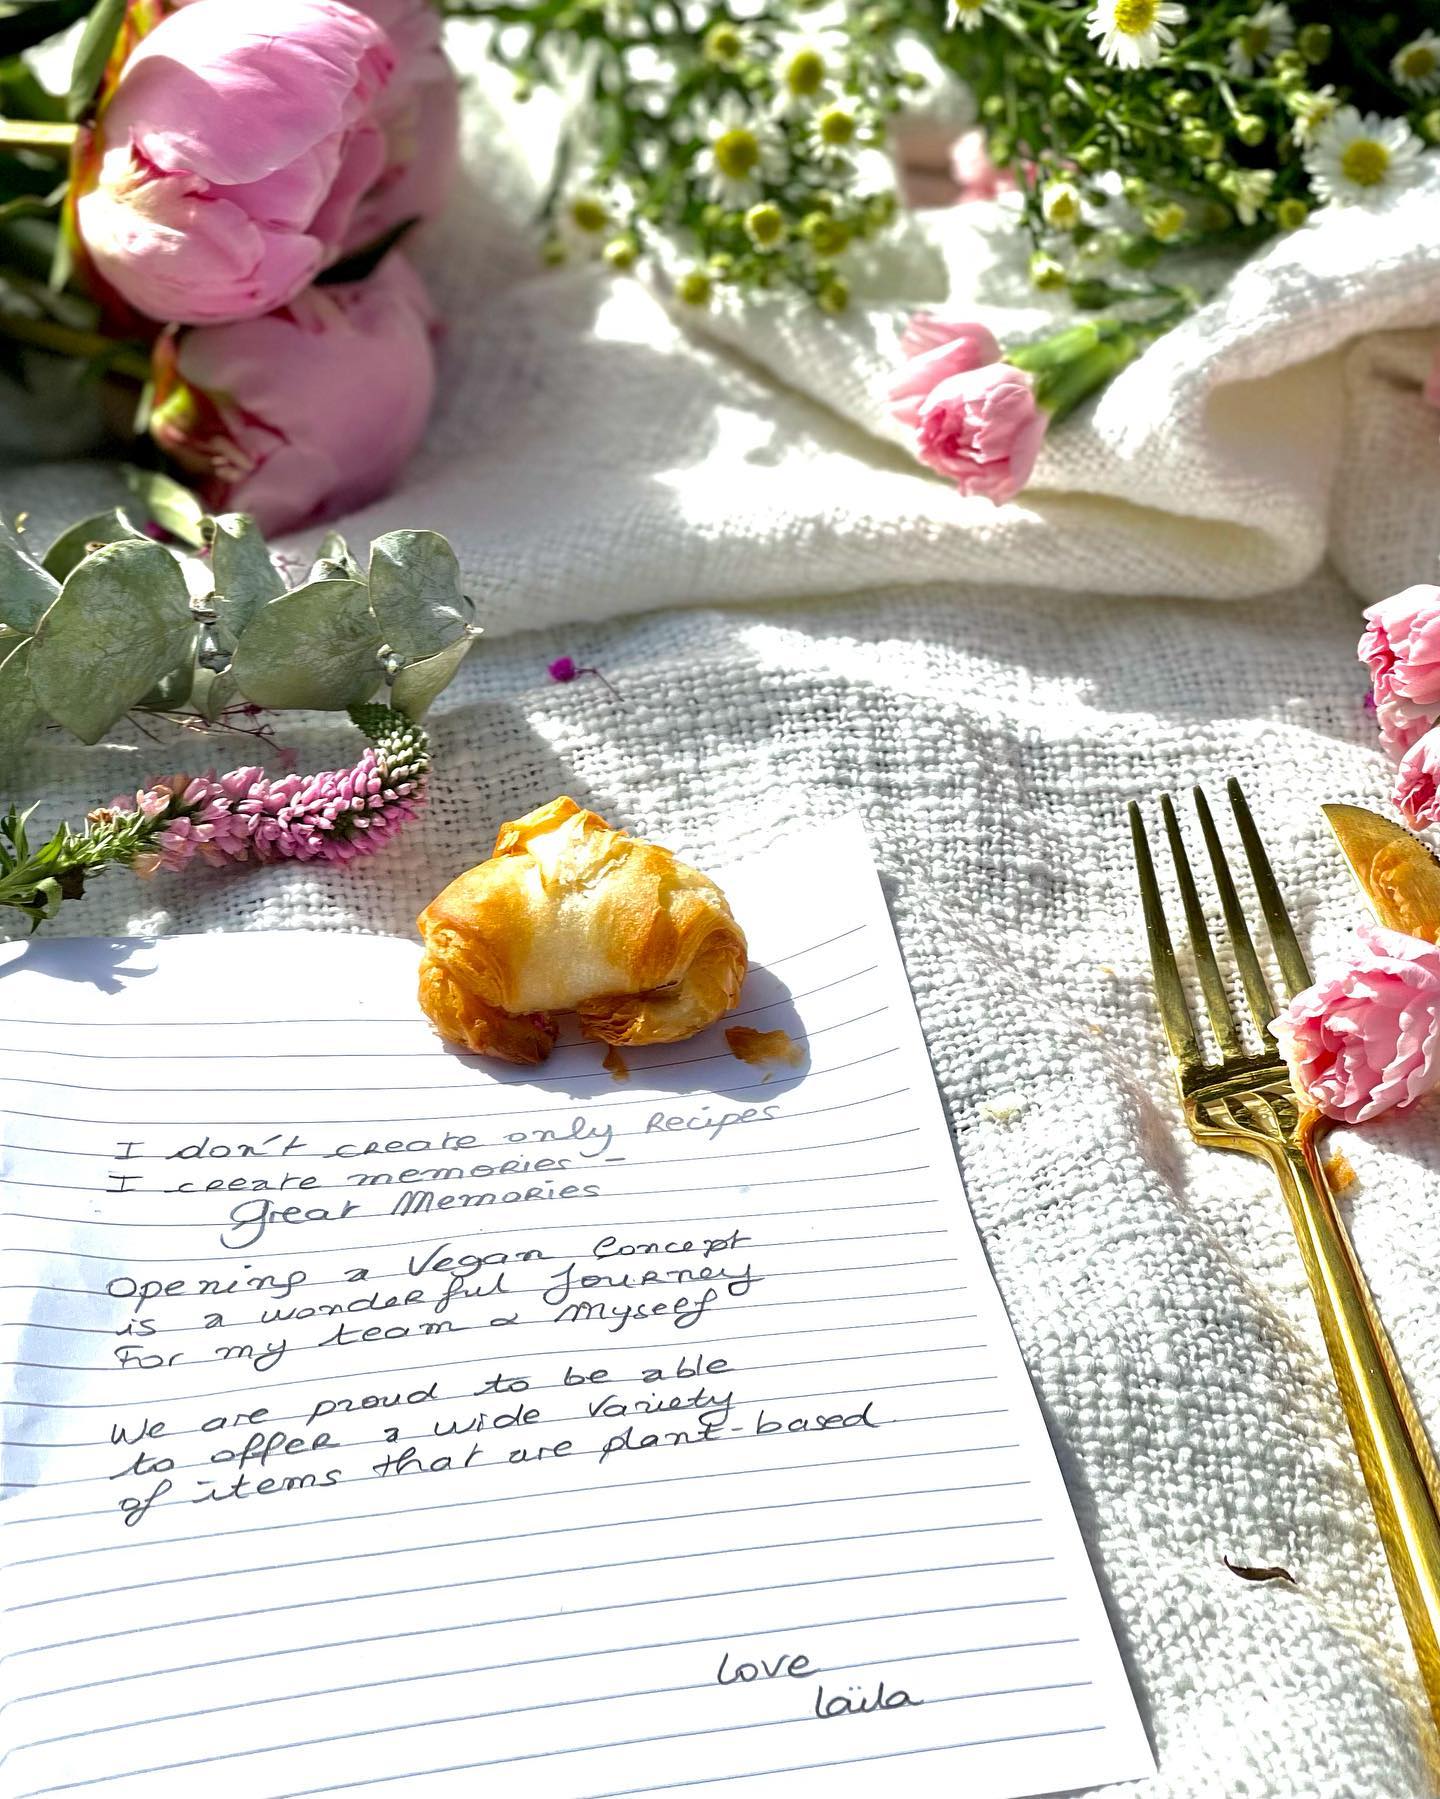 I don't create only Recipes
I create memories -
Great Memories
Opening a Vegan Concept
is a wonderful Journey
For my team & Myself
We are proud to be able
to offer a wide variety
of items that are plant-based.
Love
laïla